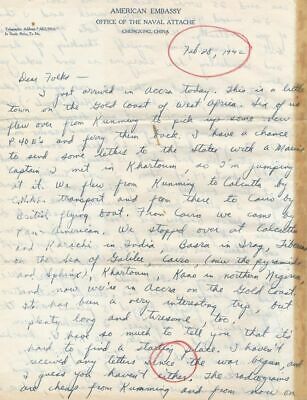 AMERICAN EMBASSY
OFFICE OF THE NAVAL ATTACHE
CHUNGKING, CHINA
Feb 28, 1942
Dear Folks -
I just arrived in Accra today. This is a little
town on the Gold Coast of West Africa. Six of us
flew over from Kunming to pick up some new
P-40E's and ferry them back. I have a chance
to send some letters to the States with a Marine
Captain I met in Khartoum, so I'm jumping
at it. We flew from Kunming to Calcutta by
C.N.A.C. transport and from there to Cairo by
British flying boat. From Cairo we came by
Pan-American. We stopped over at Calcutta
and Karachi in India, Basra in Iraq, Tiberius
on the Sea of Galilee Cairo (saw the pyramids
and Sphinx), Khartoum, Kano in northern Nigeria
and now we're in Accra on the Gold Coast.
It has been a very interesting trip, but
plenty long and tiresome, too.
I have so much to tell you that it's
hard to find a starting place. I haven't
received any letters since the war began, and
I guess you haven't either. The radiograms
are cheap from Kunming and from now on